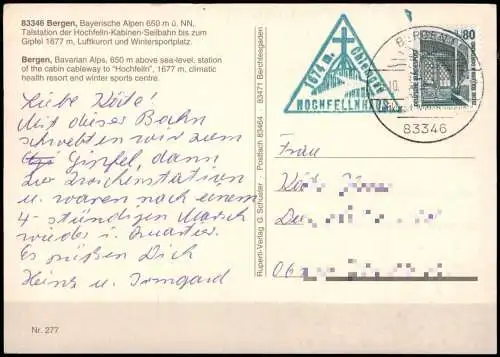 83346 Bergen, Bayerische Alpen 650 m ü. NN,
Talstation der Hochfelln-Kabinen-Seilbahn bis zum
Gipfel 1677 m, Luftkurort und Wintersportplatz.
Bergen, Bavarian Alps, 650 m above sea-level, station
of the cabin cableway to "Hochfelln", 1677 m, climatic
health resort and winter sports centre.
Liebe Käte!
Mit dieser Bahn
schwebten wir zum
Gipfel, dann
zur Zwischenstation
u. waren nach einem
4-stündigen Marsch
wieder i. Quartier.
Es grüßen Dich
Heinz u. Irmgard
Nr. 277
Rupertí-Verlag G. Schuster · Postfach 83464 · 83471 Berchtesgaden
1674 m. Chiemgau
HOCHFELLNHAUS
80
DEUTSCHE BUNDESPOST
BERGEN
83346
Frau